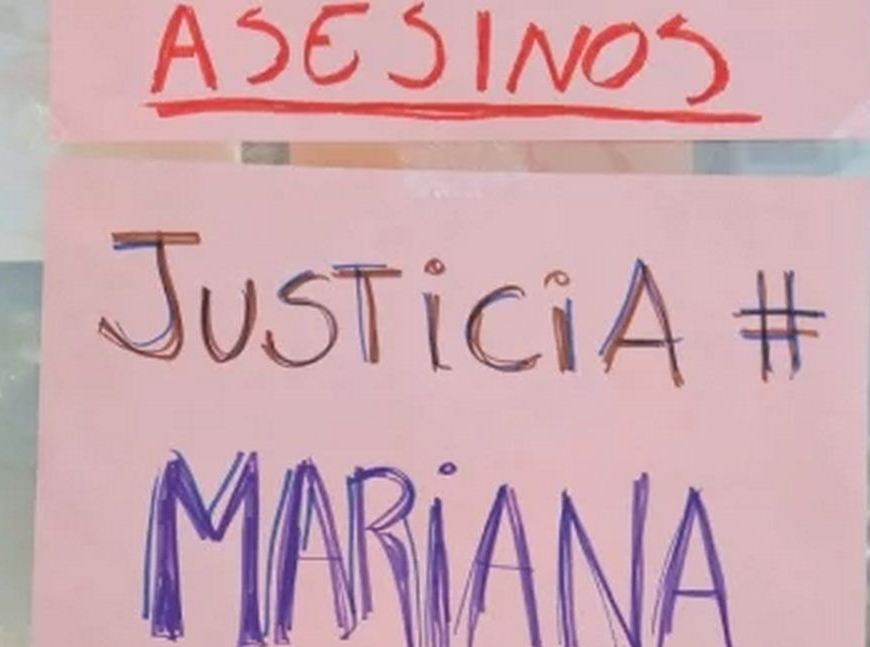 ASESINOS
JUSTiCiA #
MARiANA